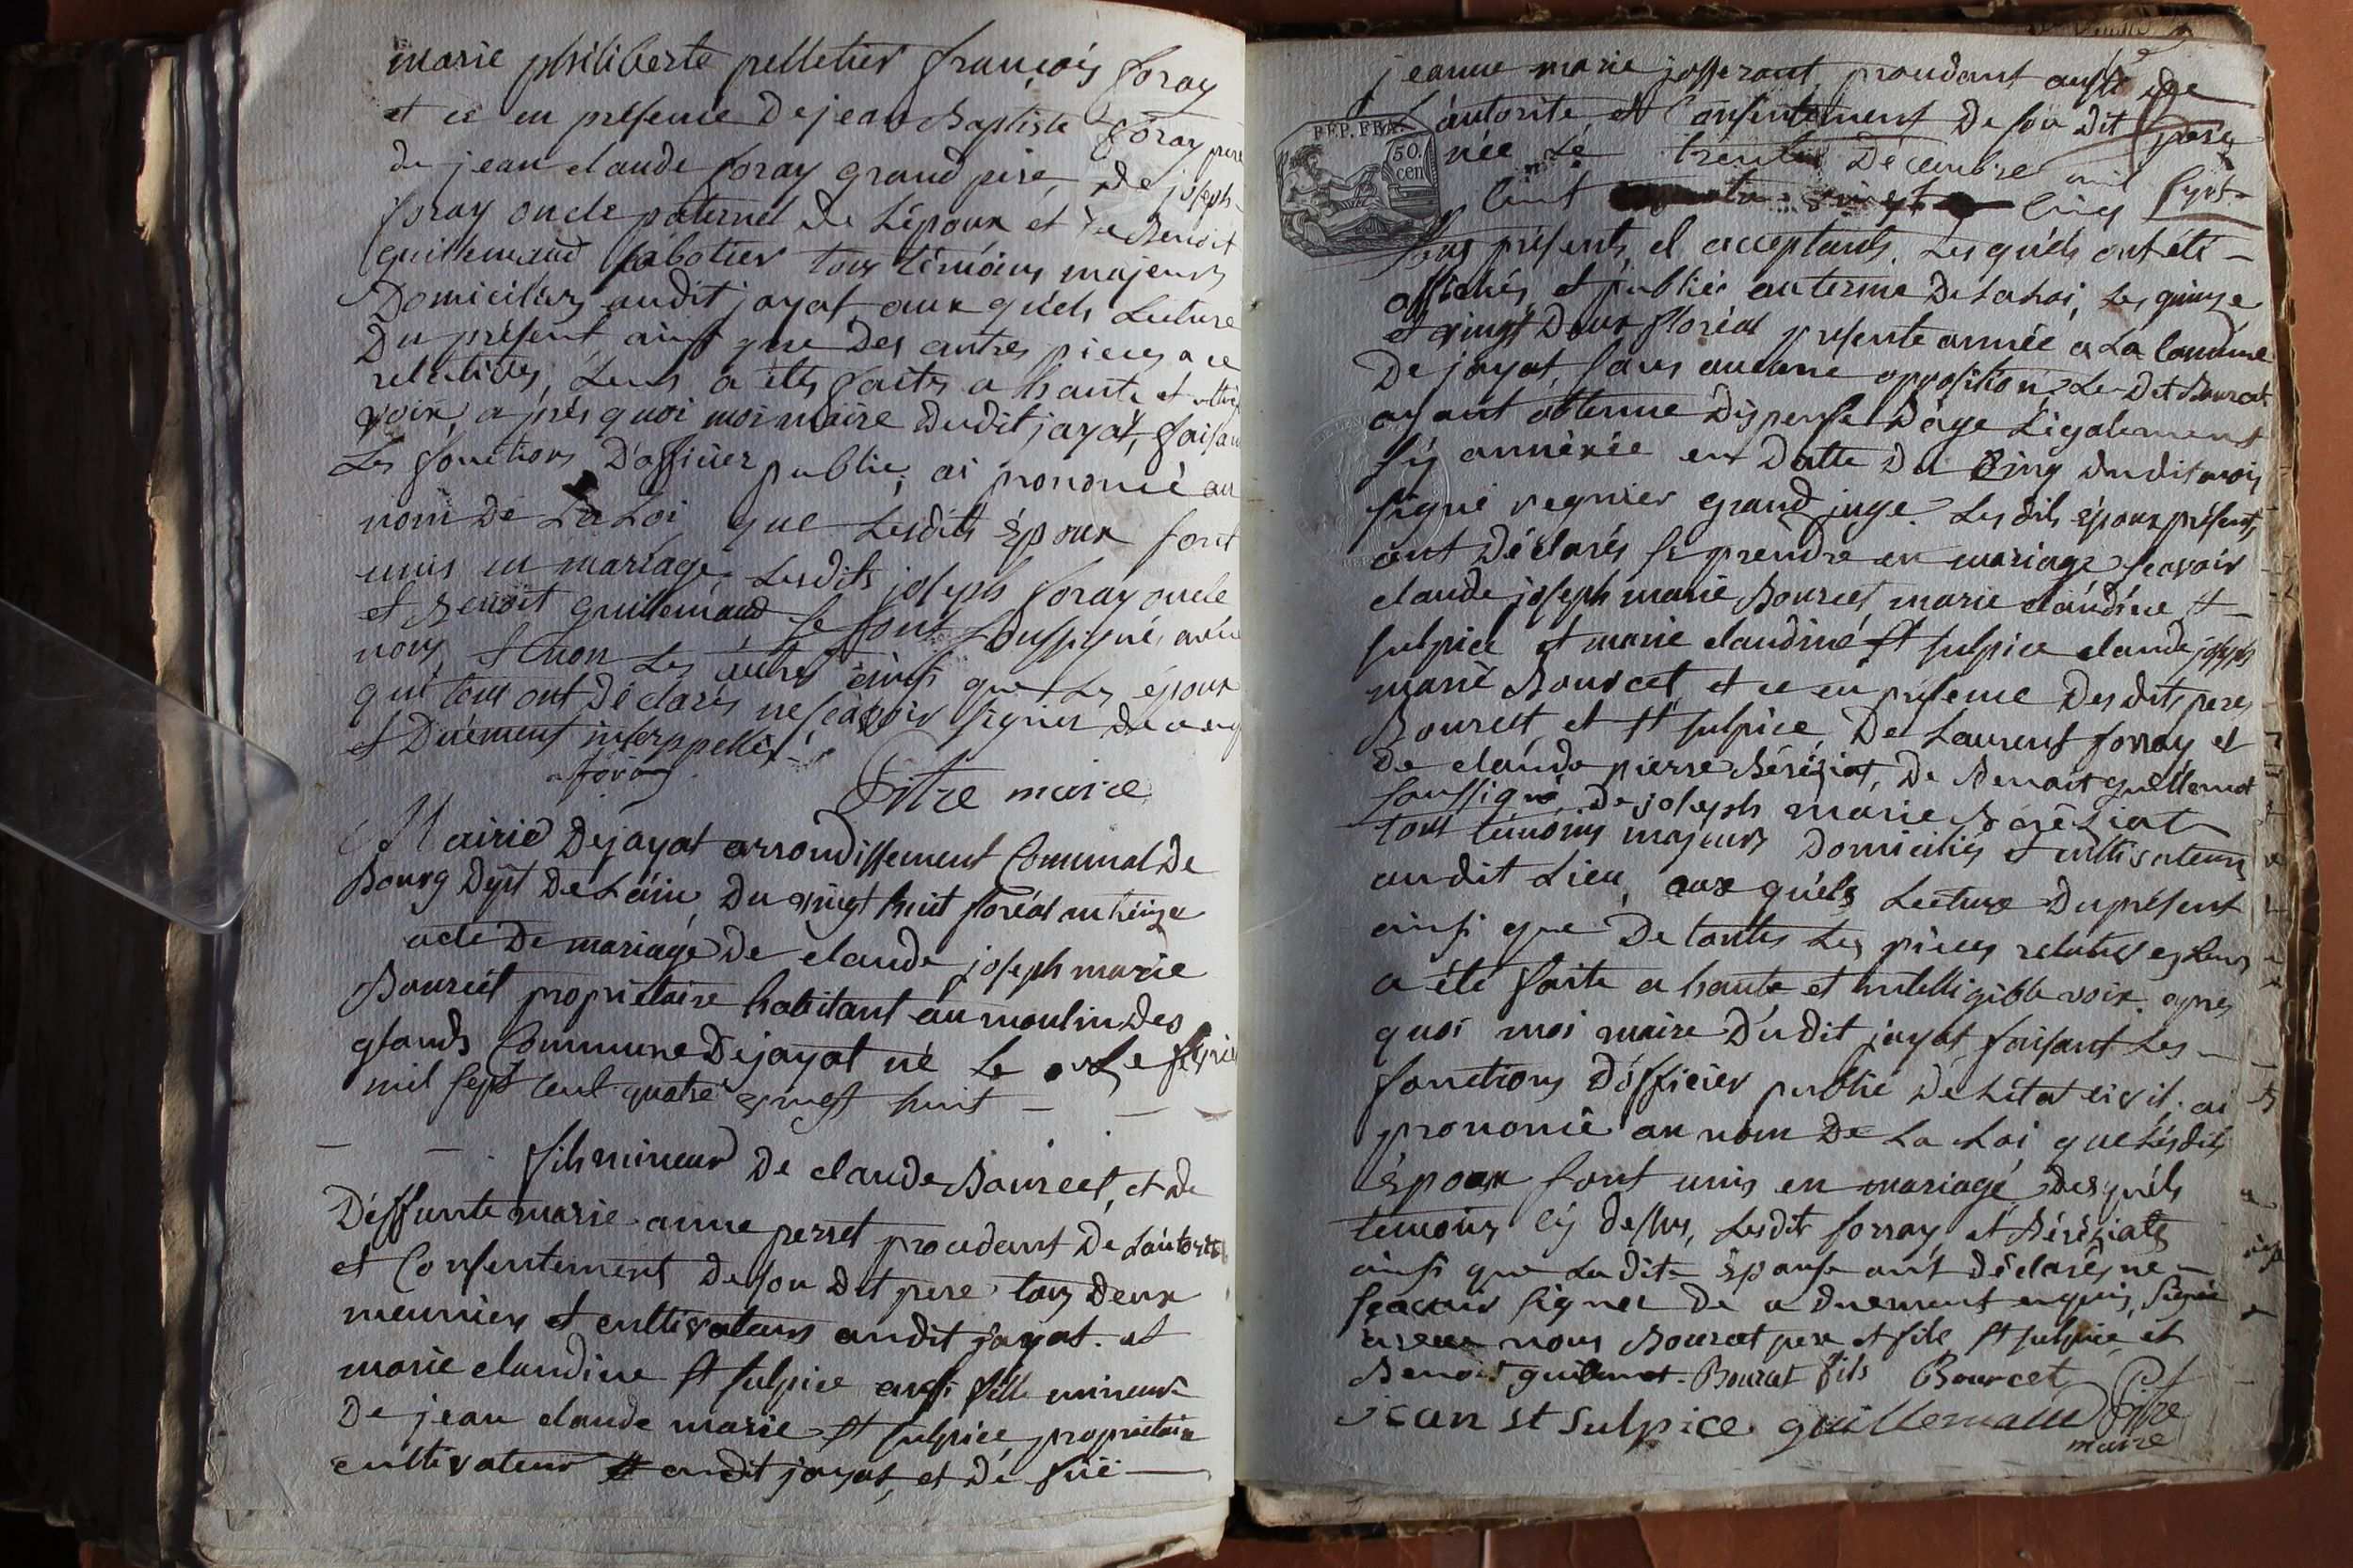 marie philiberte pelletier françois foray
et ce en présence de jean Baptiste foray pere
de jean claude foray grand pere, de joseph
foray oncle paternel de l'époux et de Benoit
guillemaud sabotier tous témoins majeurs
Domiciliés audit jayat, aux quéls Lecture
Du présent ainsi que des autres pieces a ce
relatives, Leurs a étés faites a haute et
voix, aprés quoi moi maire dudit jayat, faisan
Les fonctions D'officier public, ai prononcé au
nom de La Loi que Lesdits époux sont
unis en mariage, Lesdits joseph foray oncle
et Benoit guillemaud se sont soussignés avec
nous, et non Les autres ainsi que Les époux
qui tous ont déclarés ne sçavoir signer de ce enq
et Duement interppellés
foray
Pitre maire
Mairie De jayat arrondissement Communal De
Bourg Dept De L'ain, Du vingt huit floréal an treize
acte De mariage De claude joseph marie
Bourcet propriétaire habitant au moulin des
glands Commune De jayat né le onze fevrier
mil sept cent quatre vingt huit —
— — fils mineur de claude Bourcet, et de
Déffunte marie anne perret procédant De L'autorité
et Consentement De son dit pere tous deux
meuniers et cultivateurs audit jayat. et
marie claudine St sulpice aussi fille mineure
De jean claude marie St sulpice, propriétaire
cultivateur audit jayat, et De füe —
jeanne marie josserant, procédant aussi de
REP. FRA.
50.
cen
L'autorité et Consentement De son dit pere
née Le trente Décembre mil sept
Cent quatre vingt cinq
présents, et acceptants. Lesquéls ont été —
affichés et publiés au terme De La Loi, Les quinze
et vingt Deux floréal présente année a La Commune
De jayat, sans aucune opposition. Le dit Bourcet
ayant obtenue Dispense D'age Légalement
cy annéxée en Datte Du cinq dudit mois
signé regnier grand juge. Les dits époux présents,
ont Déclarés se prendre en mariage sçavoir
claude joseph marie Bourcet, marie claudine St
sulpice et marie claudine St sulpice claude joseph
marie Bourcet, et ce en présence Des dits peres
Bourcet et St sulpice, De Laurent forray et
De claude pierre Béréziat, De Benoit guillemot
soussigné, De joseph marie Béréziat
tous témoins majeurs Domiciliés et cultivateurs
audit Lieu, aux quéls Lecture Du présent
ainsi que De toutes Les pièces relatives Leurs
a été faite a haute et intelligible voix. après
quoi moi maire Dudit jayat, faisant Les —
fonctions D'officier public De L'état civil. ai
prononcé au nom De La Loi que Lesdits
époux sont unis en mariage, Desquéls
témoins cy dessus, Lesdit forray, et Béréziats
ainsi que La dite épouse ont Déclarés ne —
sçavoir signer De ce duement enquis, signé
avec nous Bourcet pere et fils, St sulpice, et
Benoit guillemot. Bourcet fils Bourcet
jean st sulpice. guillemaud Pitre
maire